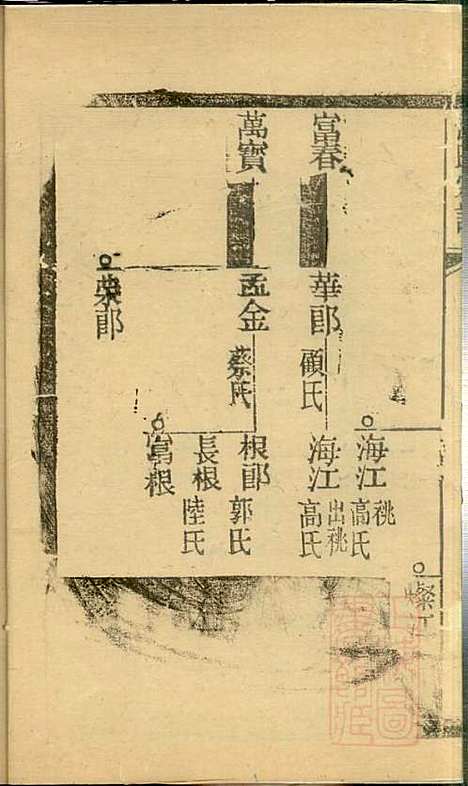 富春
華郎
顧氏
海江
祧
高氏
海江
出祧
高氏
萬寶
孟金
蔡氏
根郎
郭氏
長根
陸氏
榮郎